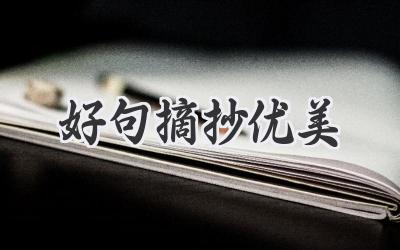 好句摘抄优美